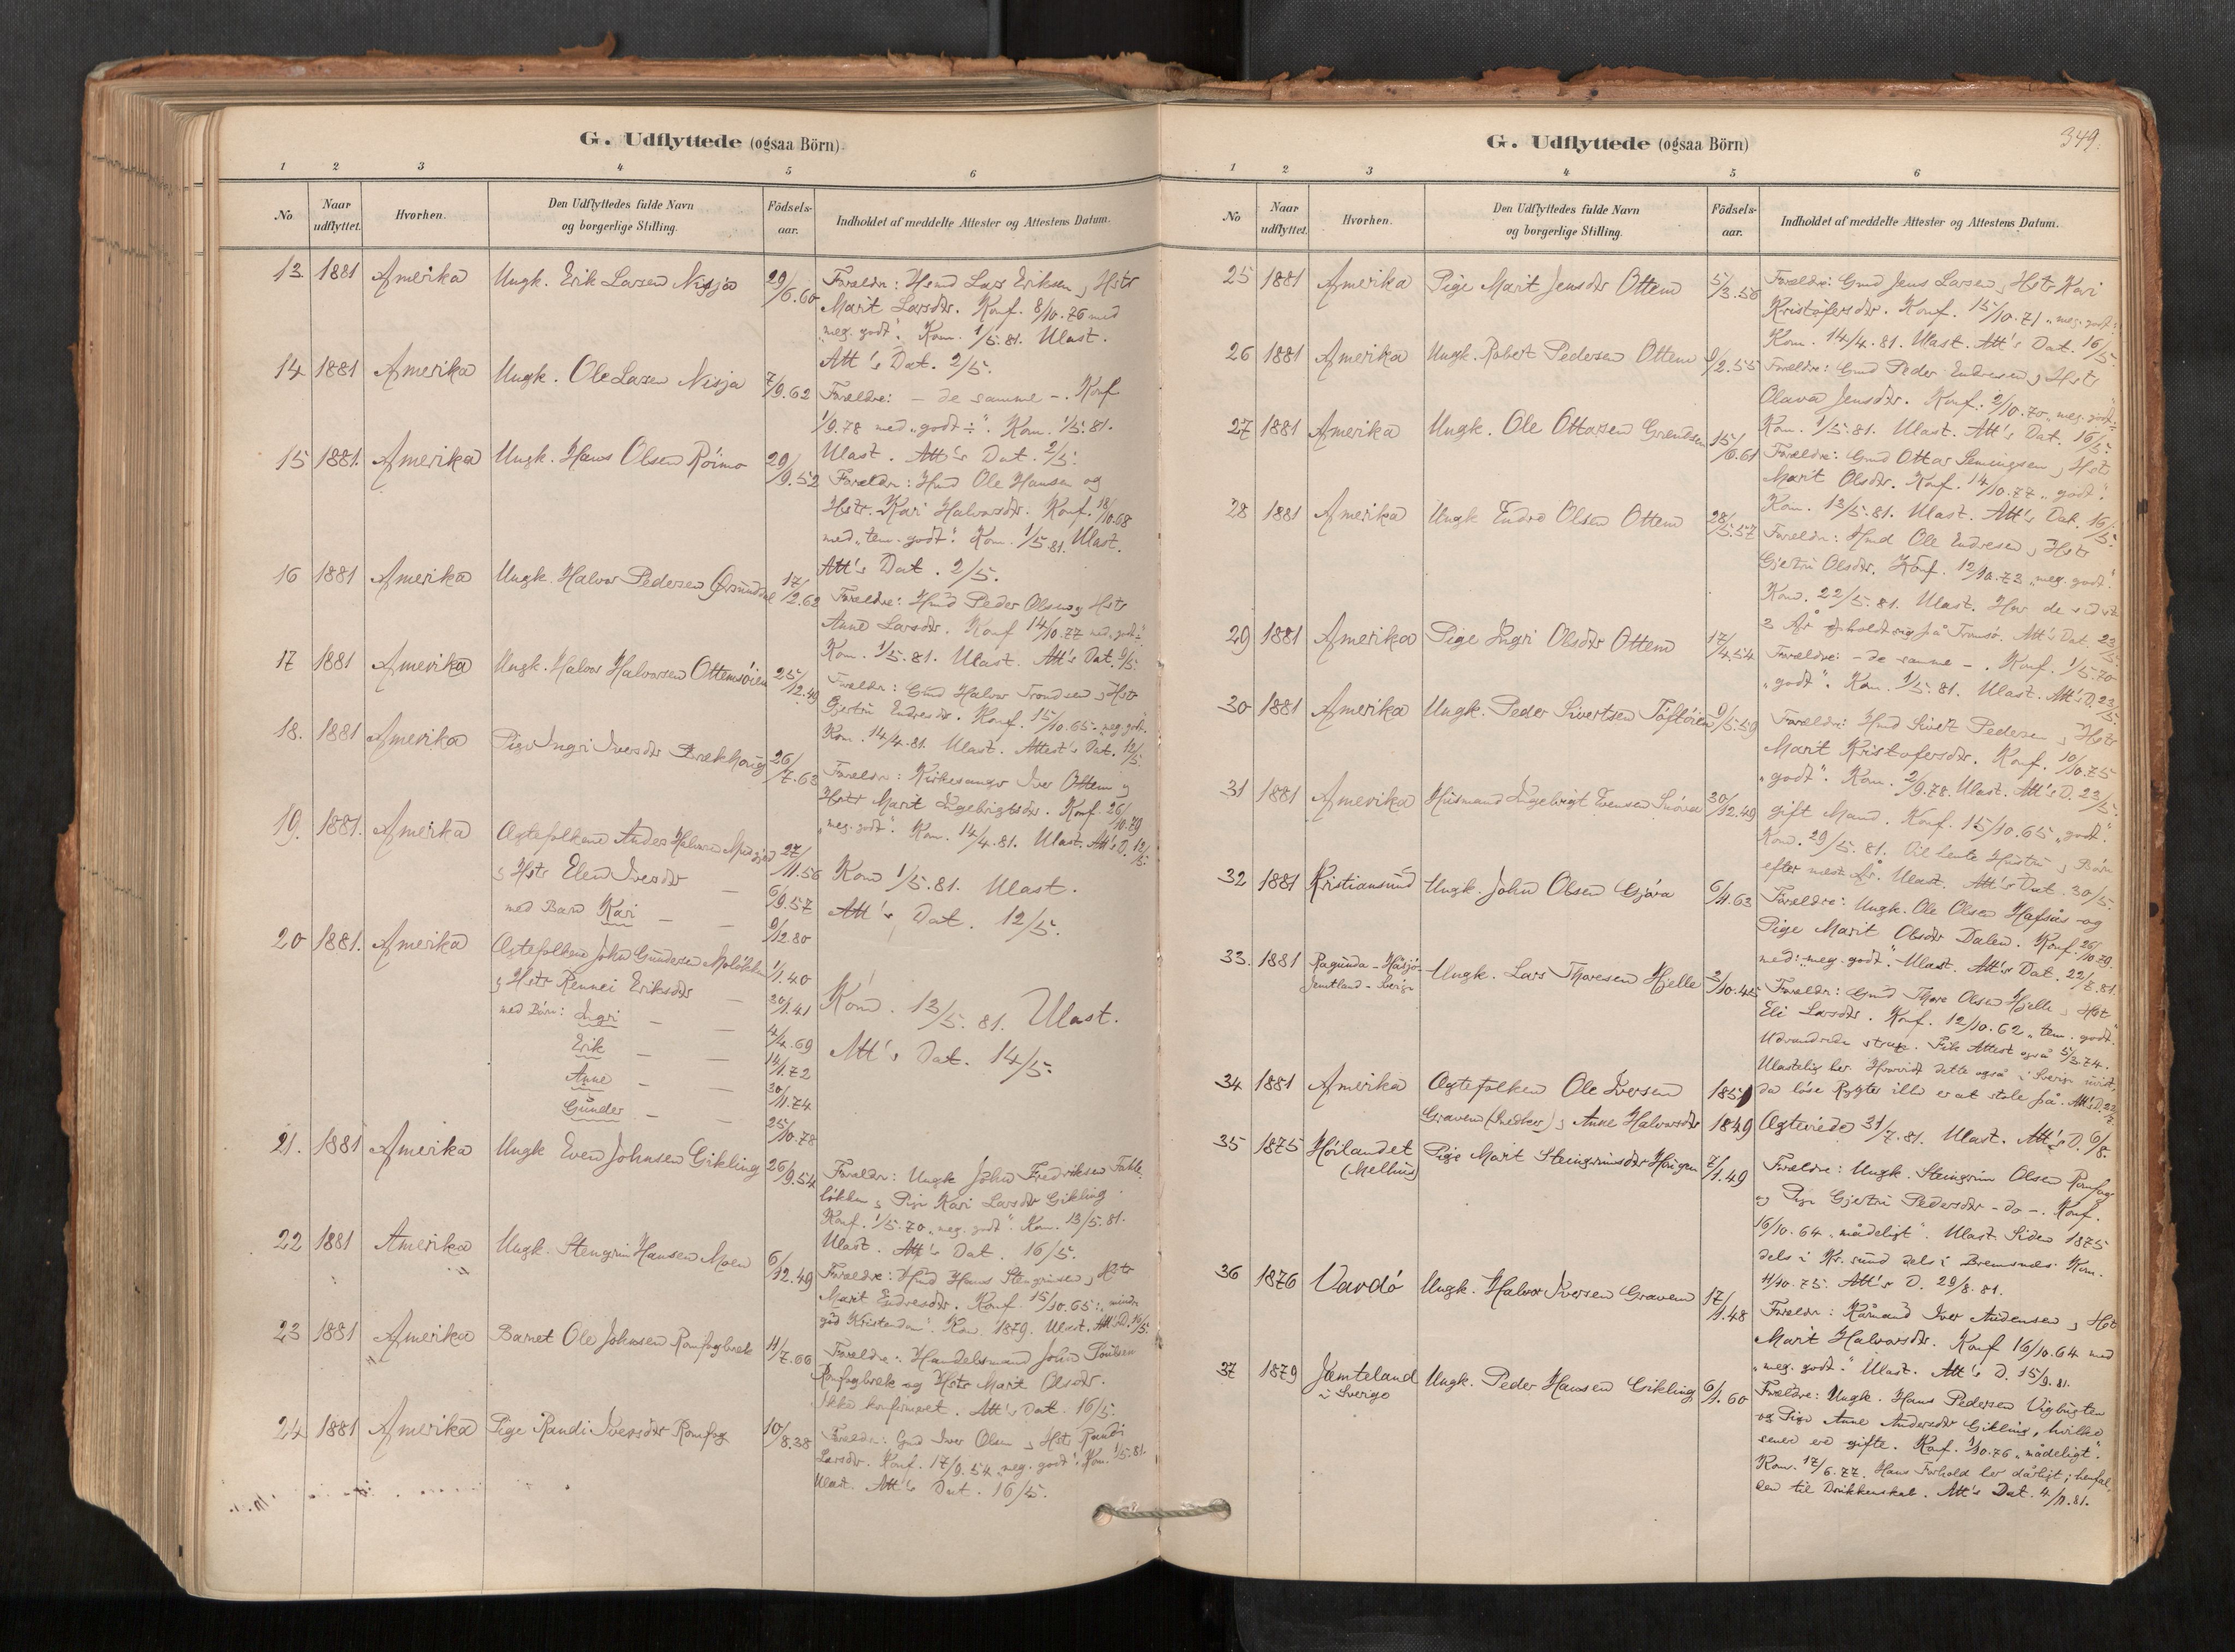 G. Udflyttede (ogsaa Börn).
1 2 3 4 5 6
No Naar udflyttet. Hvorhen. Den Udflyttedes fulde Navn og borgerlige Stilling. Födsels-aar. Indholdet af meddelte Attester og Attestens Datum.
13. 1881 Amerika Ungk. Erik Larsen Nisja 29/6.60 Forældre: Hsmd Lars Eriksen og Hstr
Marit Larsdtr. Konf. 8/10.76 med
"meg. godt". Kom. 1/5.81. Ulast.
Att's Dat. 2/5.
14 1881 Amerika Ungk. Ole Larsen Nisja 7/9.62 Forældre: - de samme -. Konf
1/9.78 med "godt ÷". Kom. 1/5.81.
Ulast. Att's Dat. 2/5.
15 1881. Amerika Ungk. Hans Olsen Röimo 29/9.52 Forældre: Hmd Ole Hansen og
Hstr. Kari Halvorsdtr. Konf. 18/10.68
med "tem. godt". Kom. 1/5.81. Ulast.
Att's Dat. 2/5.
16 1881 Amerika Ungk. Halvor Pedersen 17/2.62 Forældre: Hmd Peder Olsen og Hstr
Anne Larsdtr. Konf 14/10.77 med "godt ÷"
Kom. 1/5.81. Ulast. Att's Dat. 9/5.
17 1881 Amerika Ungk. Halvor Halvorsen Ottemsöien 25/12.49 Forældre: Gmd Halvor Trondsen og Hstr
Gjertru Endresdtr. Konf. 15/10.65 "meg. godt".
Kom. 14/4.81. Ulast. Attest's Dat. 12/5.
18. 1881 Amerika Pige Ingri Iversdtr Brækhaug 26/7.63 Forældre: Kirkesanger Iver Ottem og
Hstr Marit Ingebrigtsdtr. Konf. 26/10.79
"meg. godt". Kom. 14/4.81. Ulast. Att's D. 12/5.
19. 1881. Amerika Ægtefolkene Anders Halvorsen 27/11.56
og Hstr Elen Iversdtr — 6/9.57 Kom 1/5.81. Ulast.
med Barn Kari — — 9/12.80 Att's Dat. 12/5.
20 1881. Amerika Ægtefolkene John Gundersen Molökken 1/1.40
og Hstr Rennei Eriksdtr — 30/1.41 Kom. 13/5.81. Ulast.
med Börn: Ingri — — 4/4.69 Att's Dat. 14/5.
Erik — — 14/1.72
Anne — — 30/11.74
Gunder — — 25/10.78
21. 1881 Amerika Ungk Even Johnsen Gikling 26/9.54 Forældre: Ungk John Fredriksen Fahle-
lökken og Pige Kari Larsdtr Gikling.
Konf. 1/5.70 "meg. godt". Kom. 13/5.81.
Ulast. Att's Dat. 16/5.
22 1881 Amerika Ungk. Stengrim Hansen Moen 6/12.49 Forældre: Hmd Hans Stengrimsen og Hstr
Marit Endresdtr. Konf. 15/10.65: "mindre
god Kristendom". Kom. 1879. Ulast. Att's D. 16/5.
23 1881 Amerika Barnet Ole Johnsen Romfogbræk 11/7.66 Forældre: Handelsmand John
Romfogbræk og Hstr Marit Olsdtr.
Ikke konfirmeret. Att's Dat. 16/5.
24 1881 Amerika Pige Randi Iversdtr Romfog 10/8.38 Forældre: Gmd Iver Olsen og Hstr Randi
Larsdtr. Konf. 17/9.54 "meg. godt". Kom. 1/5.81.
Ulast. Att's Dat. 16/5.
349.
G. Udflyttede (ogsaa Börn)
1 2 3 4 5 6
No Naar udflyttet. Hvorhen. Den Udflyttedes fulde Navn og borgerlige Stilling. Födsels-aar. Indholdet af meddelte Attester og Attestens Datum.
25 1881 Amerika Pige Marit Jensdtr Ottem 5/3.56 Forældre: Gmd Jens Larsen og Hstr Kari
Kristofersdtr. Konf. 15/10.71 "meg. godt".
Kom. 14/4.81. Ulast. Att's Dat. 16/5.
26 1881 Amerika Ungk. Robert Pedersen Ottem 9/2.55 Forældre: Gmd Peder Endresen og Hstr
Olava Jensdtr. Konf: 2/10.70 "meg. godt ÷"
Kom. 1/5.81. Ulast. Att's Dat. 16/5.
27 1881 Amerika Ungk. Ole Ottarsen Grendsen 15/6.61 Forældre: Gmd Ottar Semingsen og Hstr
Marit Olsdtr. Konf. 14/10.77 "godt".
Kom. 13/5.81. Ulast. Att's Dat. 16/5.
28 1881 Amerika Ungk Endre Olsen Ottem 28/5.57 Forældre: Hmd Ole Endresen og Hstr
Gjertru Olsdtr. Konf. 12/10.73 "meg. godt".
Kom. 22/5.81. Ulast. Har de sidste
2 År opholdt sig på Tromsö. Att's Dat. 23/5.
29 1881 Amerika Pige Ingri Olsdtr Ottem 17/4.54 Forældre: - de samme -. Konf. 1/5.70
"godt". Kom. 1/5.81. Ulast. Att's D. 23/5.
30 1881 Amerika Ungk. Peder Sivertsen Toftöien 9/5.59 Forældre: Hmd Sivert Pedersen og Hstr
Marit Kristofersdtr. Konf. 10/10.75
"godt". Kom. 2/9.78. Ulast. Att's D. 23/5.
31 1881 Amerika Husmand Ingebrigt Evensen Snöva 30/12.49 gift Mand. Konf. 15/10.65 "godt".
Kom. 29/5.81. Vil hente Hustru og Börn
efter næste År. Ulast. Att's Dat. 30/5.
32 1881 Kristiansund Ungk. John Olsen Gjöra 6/4.63 Forældre: Ungk. Ole Olsen Hafsås og
Pige Marit Olsdtr Dalen. Konf. 26/10.79.
med: "meg. godt". Ulast. Att's Dat. 22/7.81.
33. 1881 Ragunda - Håsjö- Ungk. Lars Thoresen Hjelle 3/10.45 Forældre: Gmd Thore Olsen Hjelle og Hst
Jemtland - Sverige Eli Larsdtr. Konf. 12/10.62 "tem. godt".
Udvandrede strax. Fik Attest også 5/3.74.
Ulastelig her. Hvorvidt dette også i Sverige uvist,
da löse Rygter ille er at stole på. Att's D. 22/7.
34 1881 Amerika Ægtefolkene Ole Iversen 1851
Gravem (Snedker) og Anne Halvorsdtr 1849 Ægteviede 31/7.81. Ulast. Att's D. 6/8.
35 1875 Höilandet Pige Marit Steingrimsdtr Haugen 7/1.49 Forældre: Ungk. Steingrim Olsen Romfog
(Melhus) og Pige Gjertru Pedersdtr - do -. Konf.
16/10.64 "mådeligt". Ulast. Siden 1875
dels i Kr.sund dels i Bremsnæs. Kom.
11/10.75. Att's D. 29/8.81.
36 1876 Vardö Ungk. Halvor Iversen Gravem 17/1.48 Forældre: Kårmand Iver Andersen og Hst
Marit Halvorsdtr. Konf 16/10.64 med
"meg. godt." Ulast. Att's D. 15/9.81.
37 1879 Jæmteland Ungk. Peder Hansen Gikling 6/1.60 Forældre: Ungk. Hans Pedersen
i Sverige og Pige Anne Andersdtr Gikling, hvilke
senere ere gifte. Konf. 1/10.76 "mådeligt".
Kom. 17/6.77. Hans Forhold her dårligt; henfal-
den til Drikkenskab. Att's Dat. 4/11.81.